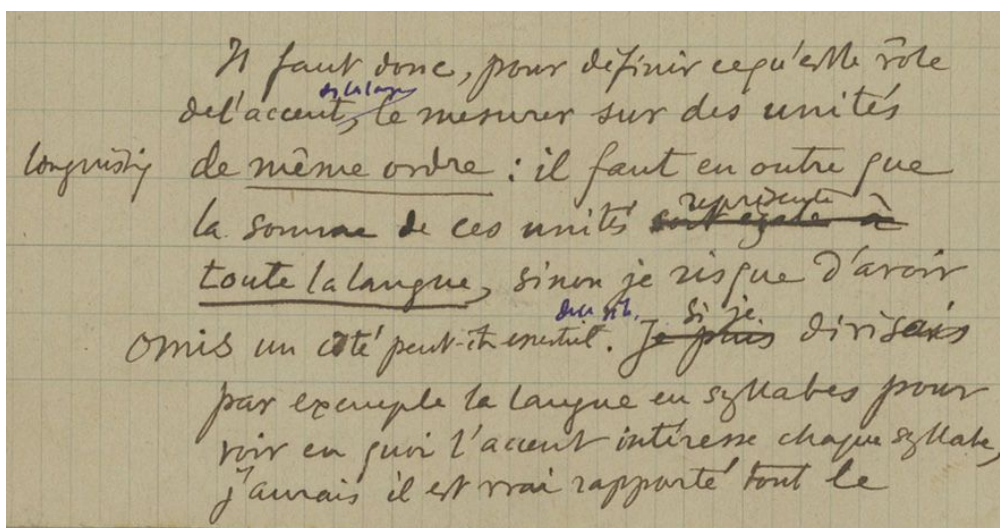 Il faut donc, pour définir ce qu'est le rôle
de l'accent, le mesurer sur des unités
de même ordre : il faut en outre que
représente
la somme de ces unités soit égale à
toute la langue, sinon je risque d'avoir
si je
omis un côté peut-être essentiel. Je puis divisais
par exemple la langue en syllabes pour
voir en quoi l'accent intéresse chaque syllabe,
j'aurais il est vrai rapporté tout le